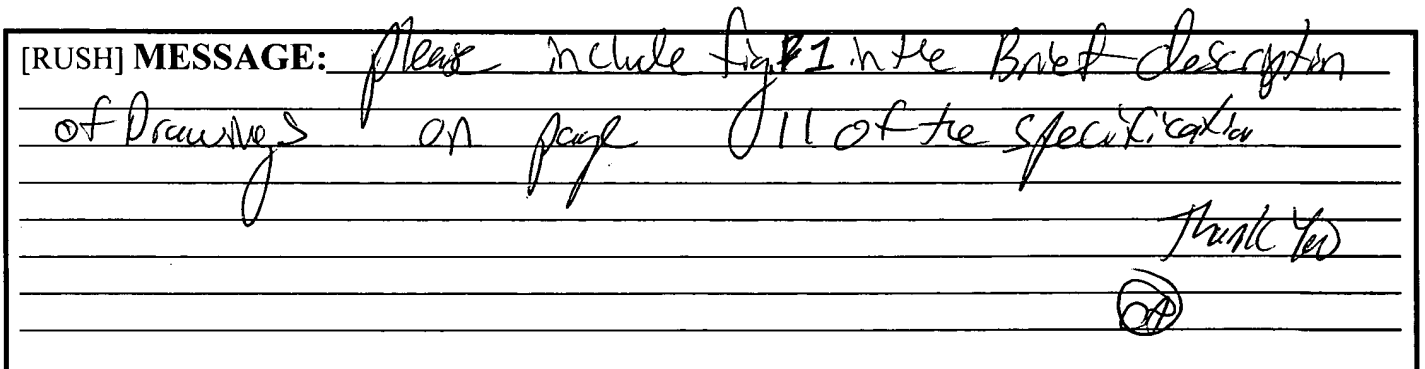 [RUSH] MESSAGE: please include fig 1 in the Brief description
of Drawings on page 11 of the specification
Thank You